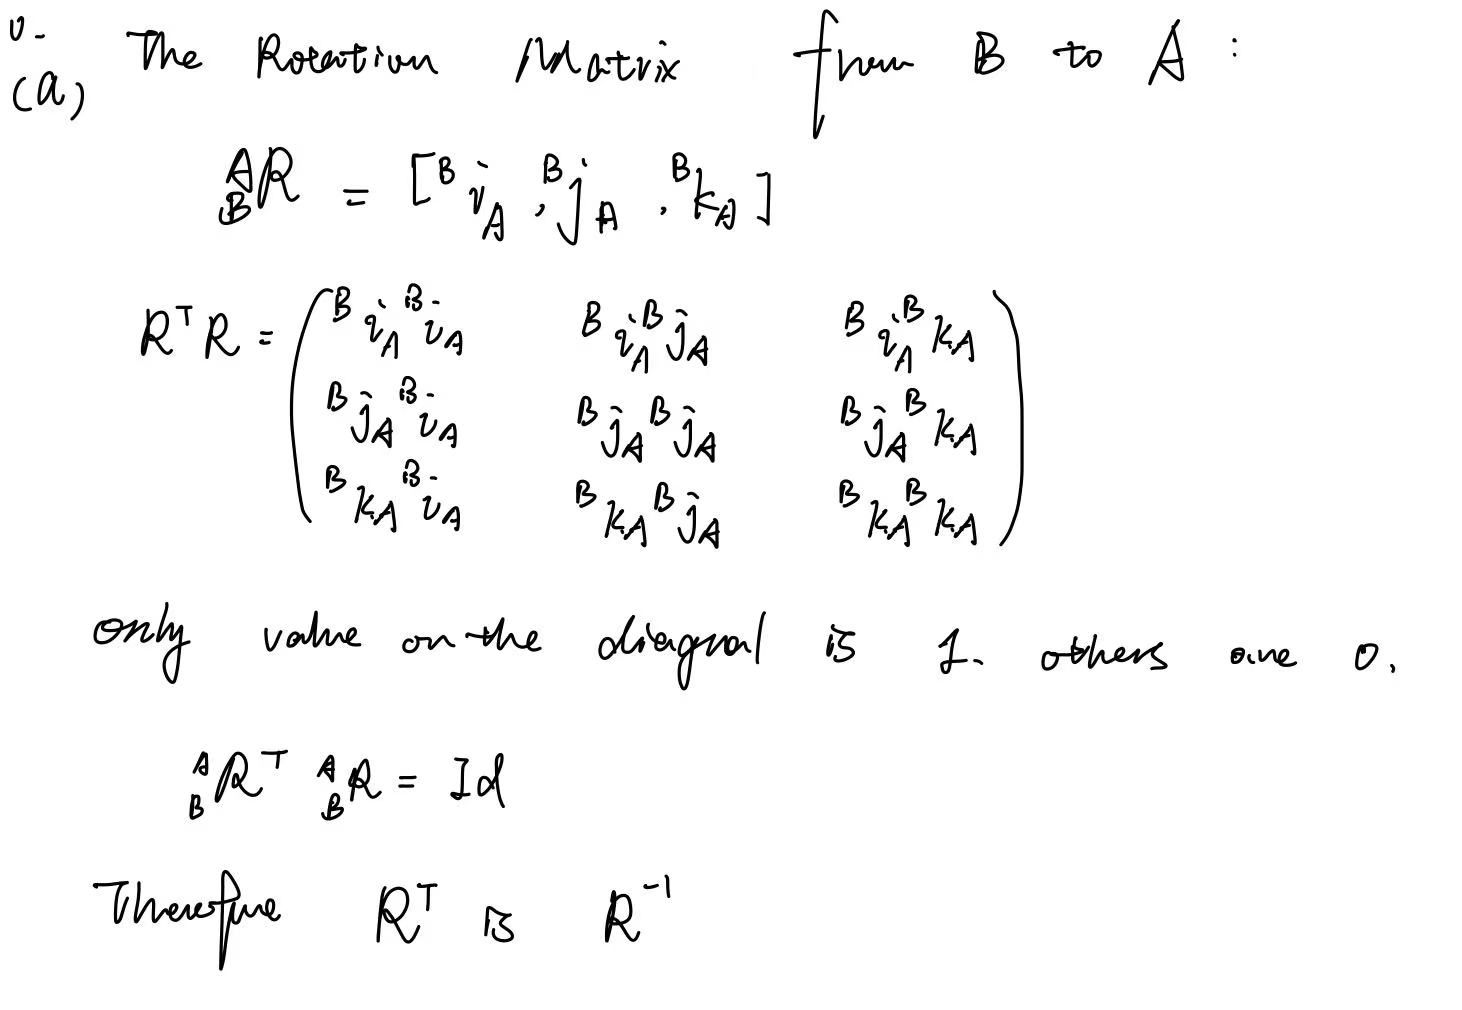 0.
(a) The Rotation Matrix from B to A :
ᴬ_B R = [ᴮi_A , ᴮj_A , ᴮk_A]
RᵀR = ( ᴮi_A ᴮi_A ᴮi_A ᴮj_A ᴮi_A ᴮk_A
ᴮj_A ᴮi_A ᴮj_A ᴮj_A ᴮj_A ᴮk_A
ᴮk_A ᴮi_A ᴮk_A ᴮj_A ᴮk_A ᴮk_A )
only value on the diagnal is 1. others are 0.
ᴬ_B Rᵀ ᴬ_B R = Id
Therefore Rᵀ is R⁻¹